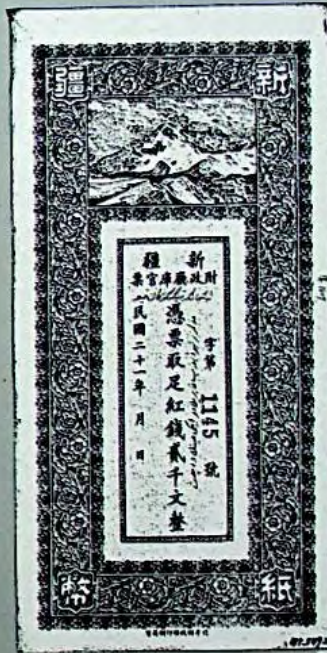 新疆
新疆
財政廳庫官票
字第 1145 號
憑票取足紅錢貳千文整
民國二十一年 月 日
紙幣